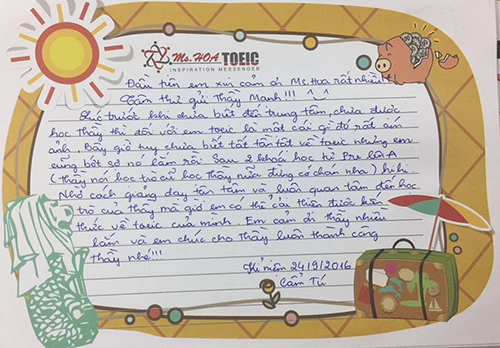 Ms.HOA TOEIC
INSPIRATION MESSENGER
Đầu tiên em xin cảm ơn Ms.Hoa rất nhiều!
Tâm thư gửi Thầy Mạnh!!! ^_^
trước khi chưa biết đến trung tâm, chưa được
học thầy thì đối với em toeic là một cái gì đó rất ám
ảnh. Bây giờ tuy chưa biết tất tần tật về toeic nhưng em
cũng bớt sợ nó lắm rồi. Sau 2 khoá học từ Pre lên A
(Thầy nói học trò cũ học thầy nữa đừng có chán nha) hihi
Nhờ cách giảng dạy tận tâm và luôn quan tâm đến học
trò của thầy mà giờ em có thể cải thiện được kiến
thức về toeic của mình. Em cảm ơn thầy nhiều
lắm và em chúc cho thầy luôn thành công
thầy nhé!!!
Kỉ niệm 24/9/2016
Cẩm Tú